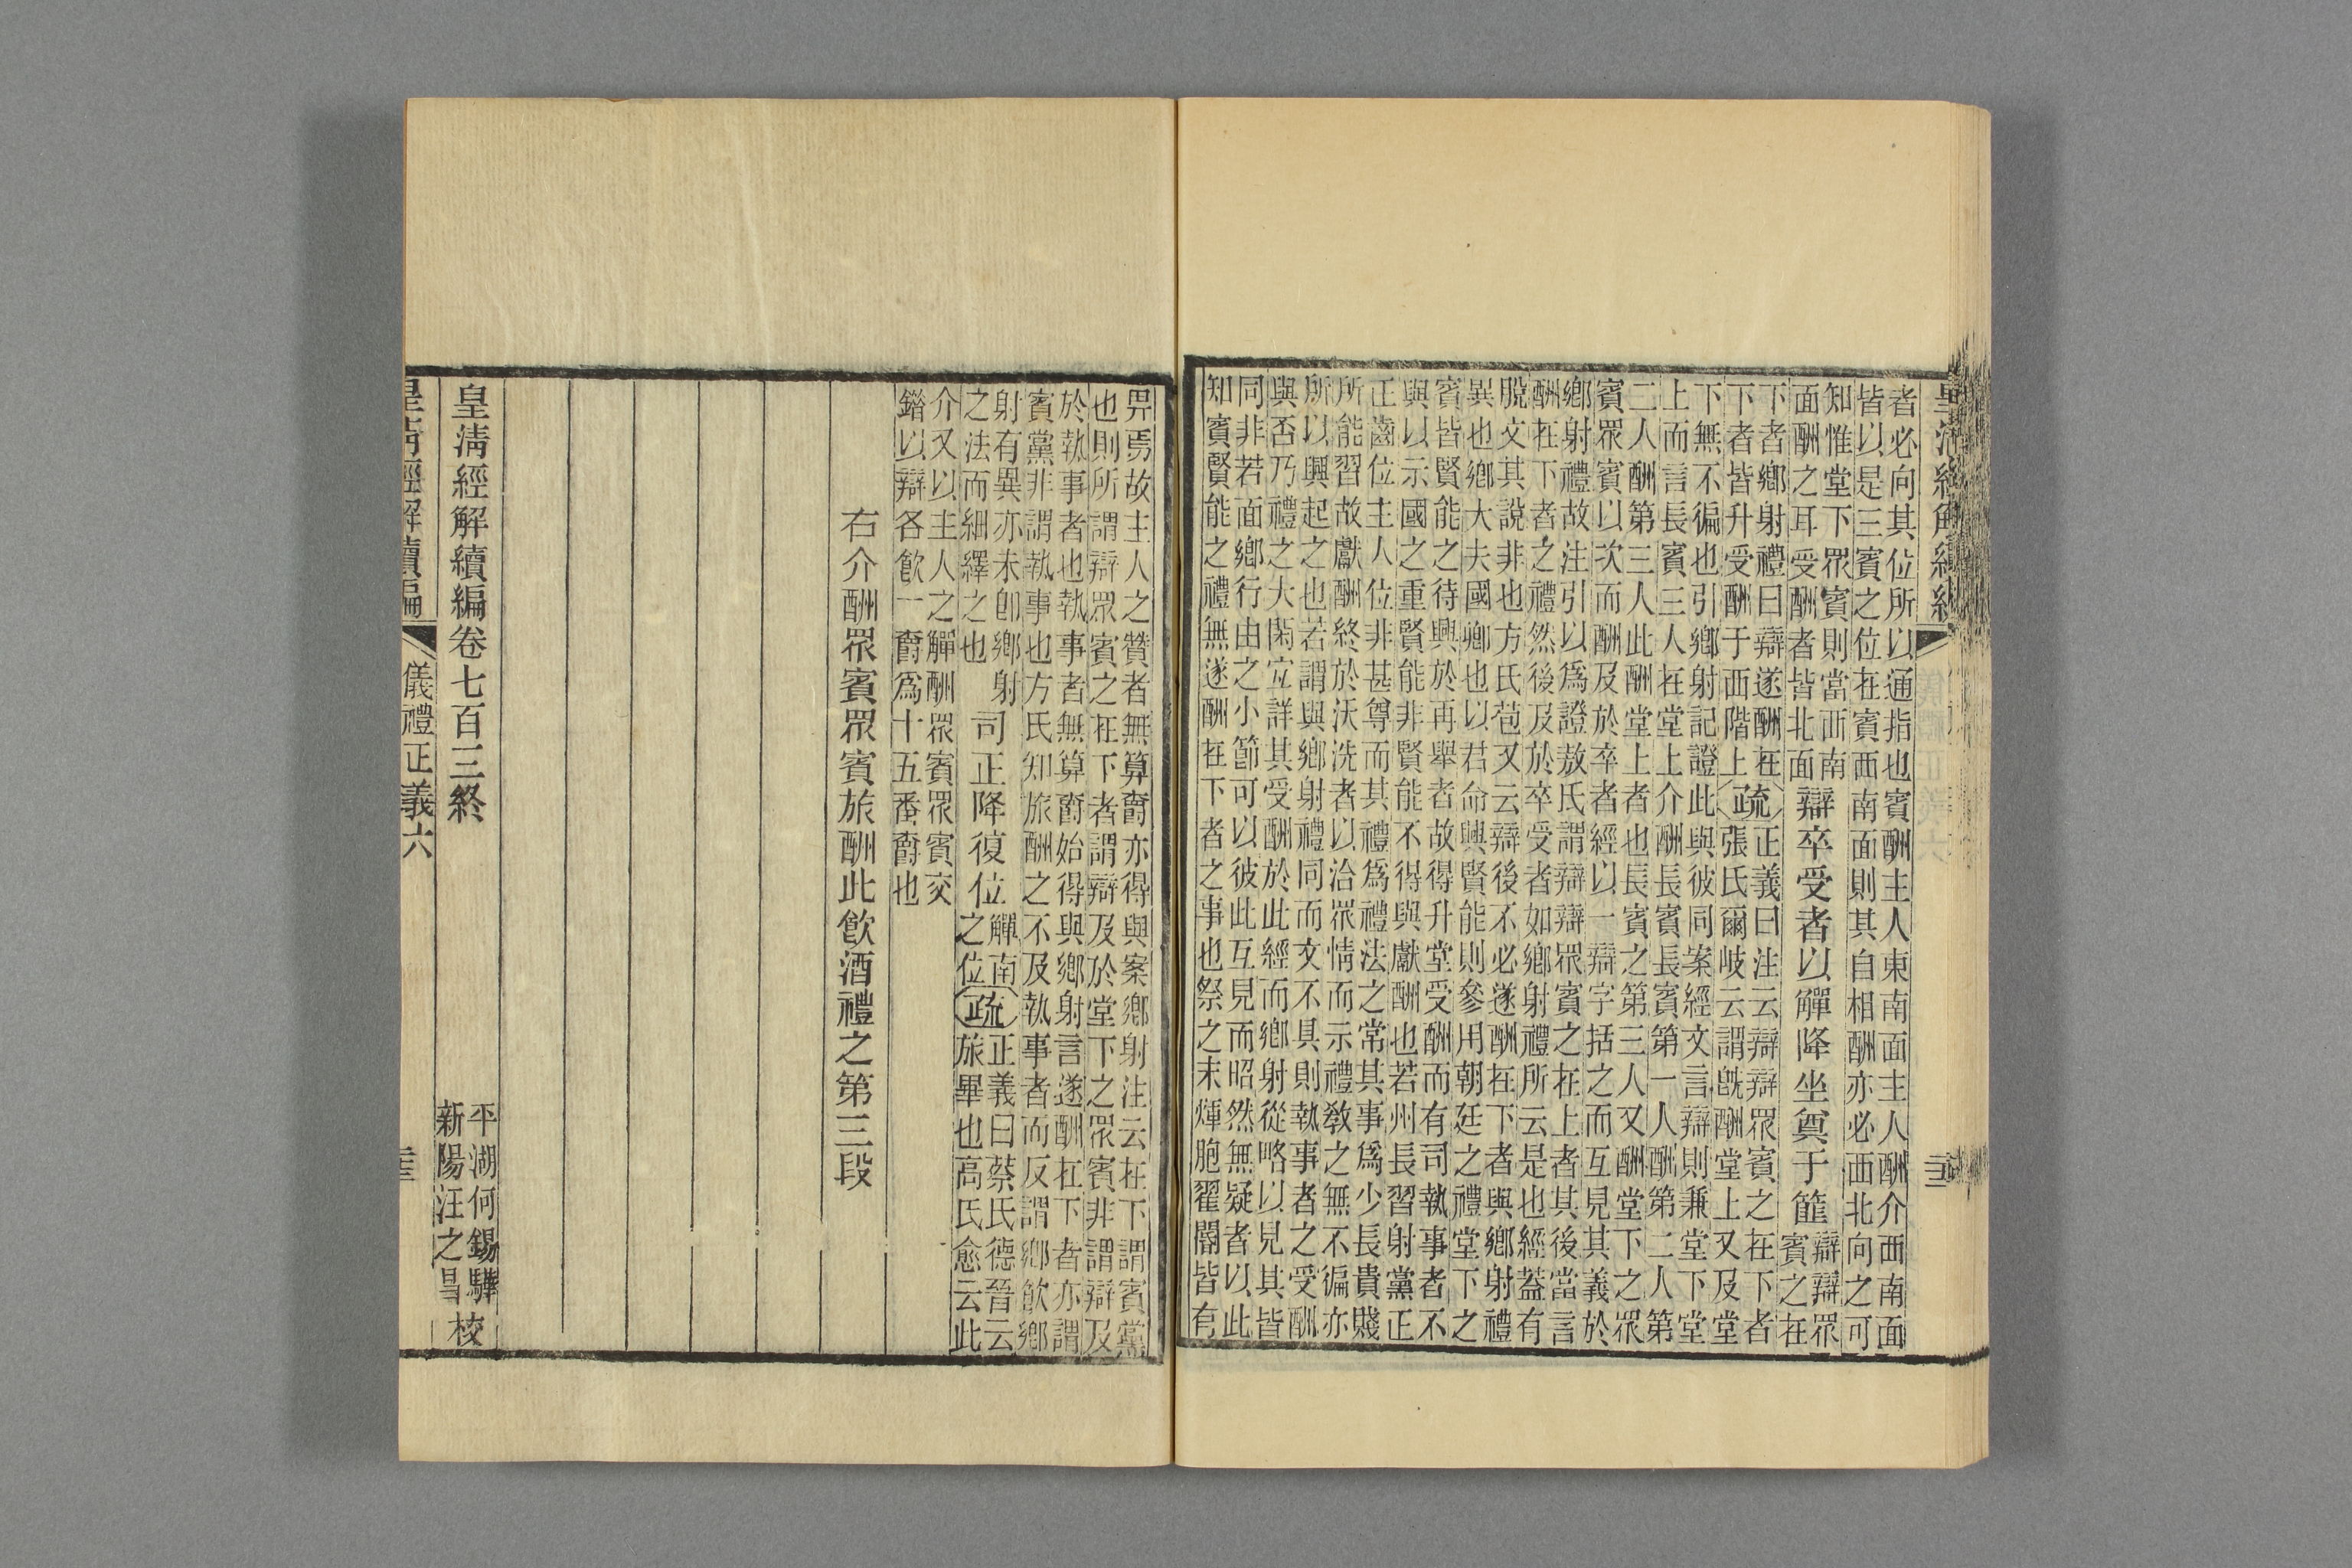 皇清經解續編
者必向其位所以通指也賓酬主人東南面主人酬介西南面
皆以是三賓之位在賓西南面則其自相酬亦必西北向之可
知惟堂下眾賓則當西南
面酬之耳受酬者皆北面
辯卒受者以觶降坐奠于篚
辯辯眾
賓之在
下者鄉射禮曰辯遂酬在
下者皆升受酬于西階上
疏
正義曰注云辯辯眾賓之在下者
張氏爾岐云謂旣酬堂上又及堂
下無不徧也引鄉射記證此與彼同案經文言辯則兼堂下堂
上而言長賓三人在堂上介酬長賓長賓第一人酬第二人第
二人酬第三人此酬堂上者也長賓之第三人又酬堂下之眾
賓眾賓以次而酬及於卒者經以一辯字括之而互見其義於
鄉射禮故注引以爲證敖氏謂辯辯眾賓之在上者其後當言
酬在下者之禮然後及於卒受者如鄉射禮所云是也經蓋有
脫文其說非也方氏苞又云辯後不必遂酬在下者與鄉射禮
異也鄉大夫國卿也以君命興賢能則參用朝廷之禮堂下之
賓皆賢能之待興於再舉者故得升堂受酬而有司執事者不
與以示國之重賢能非賢能不得與獻酬也若州長習射黨正
正齒位主人位非甚尊而其禮爲禮法之常其事爲少長貴賤
所能習故獻酬終於沃洗者以洽眾情而示禮敎之無不徧亦
所以興起之也若謂與鄉射禮同而文不具則執事者之受酬
與否乃禮之大閑宜詳其受酬於此經而鄉射從略以見其皆
同非若面鄉行由之小節可以彼此互見而昭然無疑者以此
知賓賢能之禮無遂酬在下者之事也祭之末煇胞翟閽皆有
畀焉故主人之贊者無算爵亦得與案鄉射注云在下謂賓黨
也則所謂辯眾賓之在下者謂辯及於堂下之眾賓非謂辯及
於執事者也執事者無算爵始得與鄉射言遂酬在下者亦謂
賓黨非謂執事也方氏知旅酬之不及執事者而反謂鄉飮鄉
射有異亦未卽鄉射
之法而細繹之也
司正降復位
觶南
之位
疏
正義曰蔡氏德晉云
旅畢也高氏愈云此
介又以主人之觶酬眾賓眾賓交
錯以辯各飮一爵爲十五番爵也
右介酬眾賓眾賓旅酬此飮酒禮之第三段
皇清經解續編卷七百三終
平湖何錫驊
新陽汪之昌
校
皇清經解續編
儀禮正義六